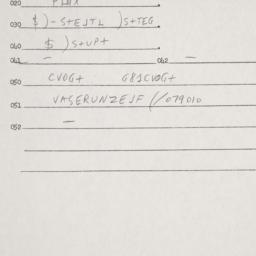 020 PLAIX
030 $)-S+EJTL )S+TEG
040 $)S+UP+
041 — 042 —
050 CVOG+ G8JCVOG+
051 VASERUNZEJF (/079010
052 —